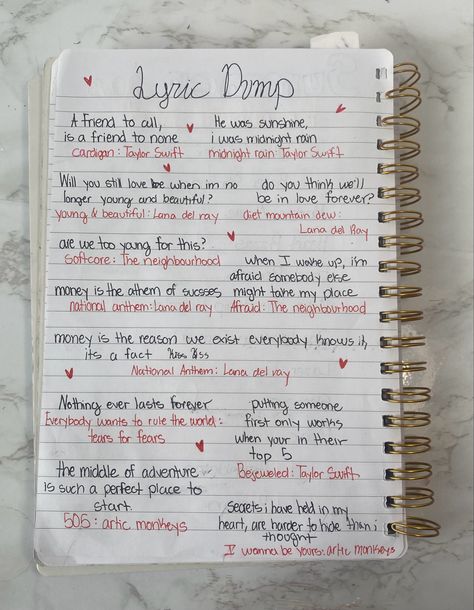 Lyric Dump
A friend to all,
is a friend to none
cardigan: Taylor Swift
He was sunshine,
i was midnight rain
midnight rain: Taylor Swift
Will you still love be when im no
longer young and beautiful?
young & beautiful: Lana del ray
do you think we'll
be in love forever?
diet mountain dew:
Lana del Ray
are we too yang for this?
softcore: The neighbourhood
when I wake up, i'm
afraid somebody else
might take my place
Afraid: The neighbourhood
money is the athem of sucsses
national anthem: Lana del ray
money is the reason we exist everybody knows it,
its a fact kiss kiss
National Anthem: Lana del ray
Nothing ever lasts forever
Everybody wants to rule the world:
tears for fears
putting someone
first only works
when your in their
top 5
Bejeweled: Taylor Swift
the middle of adventure
is such a perfect place to
start
505: artic monkeys
secrets i have held in my
heart, are harder to hide than i
thought
I wanna be yours: artic monkeys